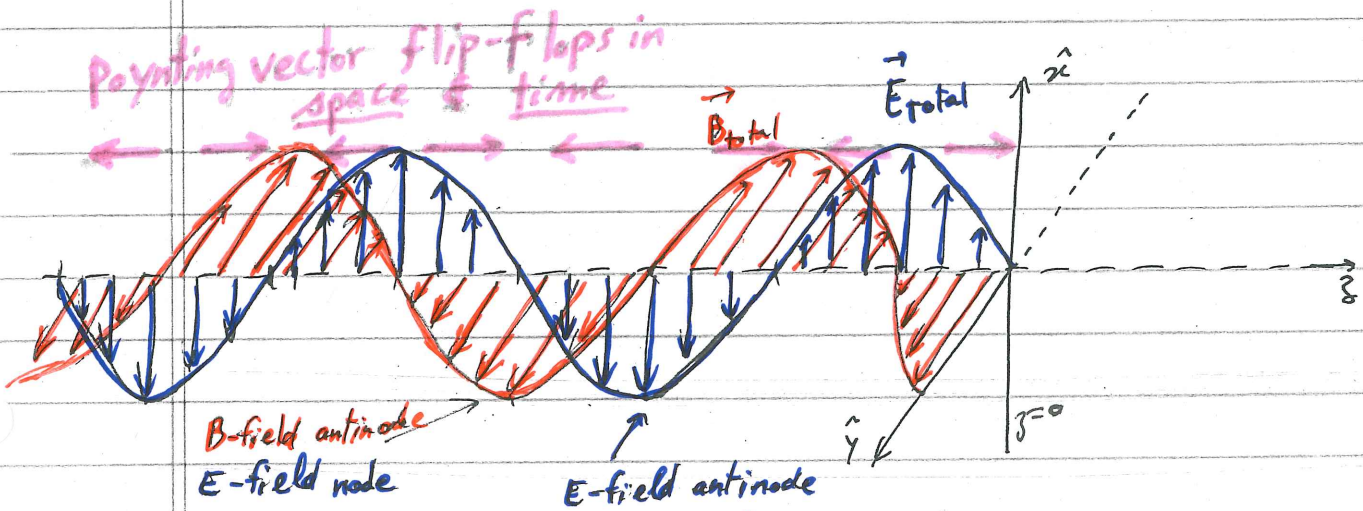 Poynting vector flip-flops in
space & time
B⃗total
E⃗Total
x̂
z
ŷ
z=0
B-field antinode
E-field node
E-field antinode